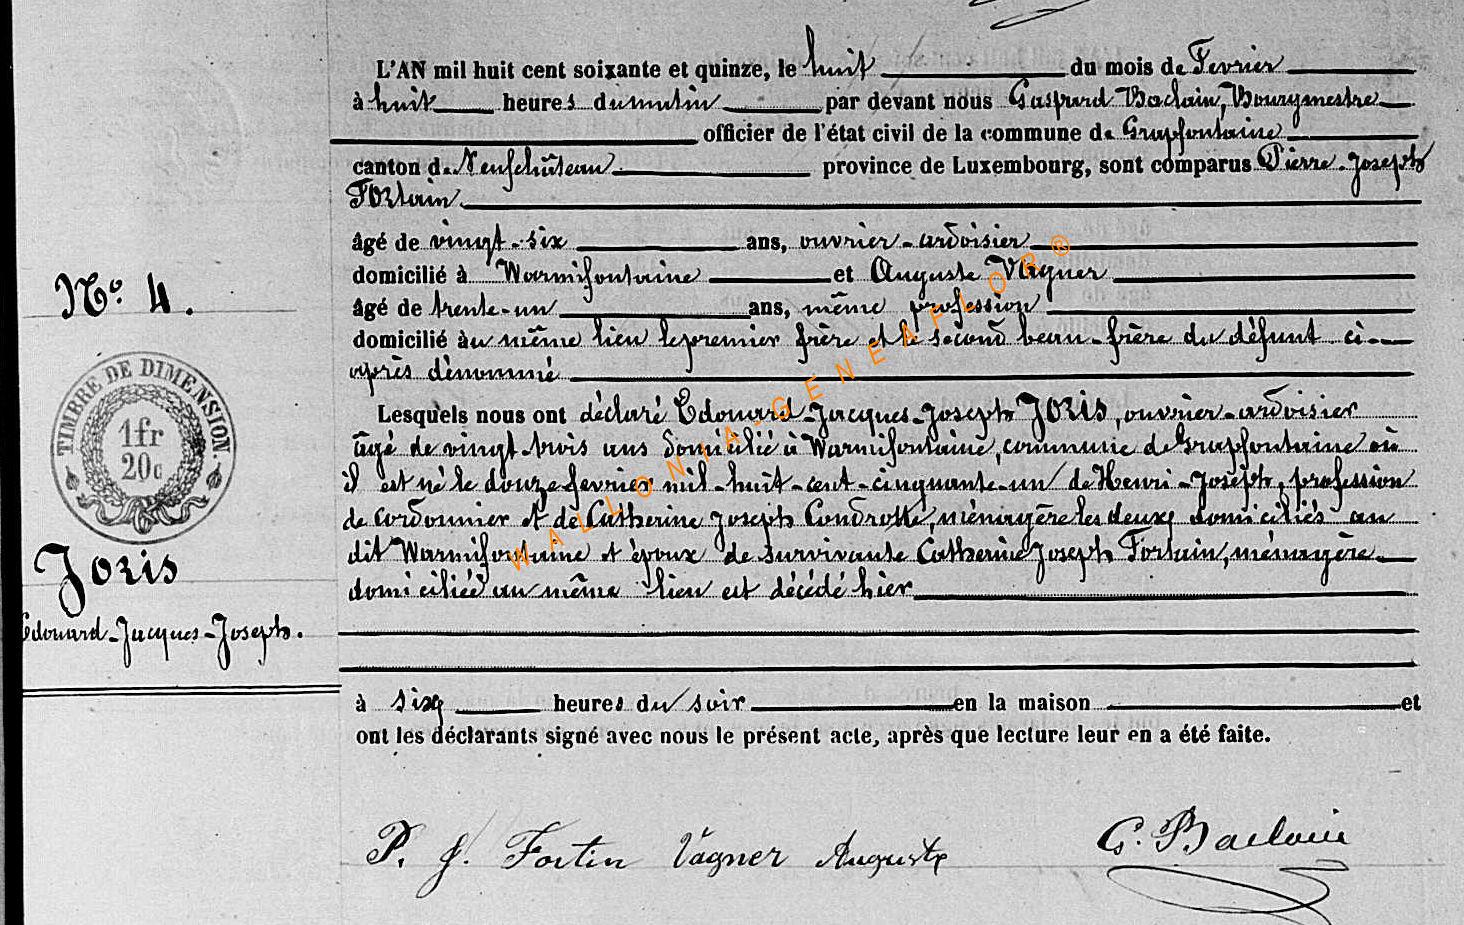 L'AN mil huit cent soixante et quinze, le huit du mois de Fevrier
à huit heures du matin par devant nous Gaspard Baclain, Bourgmestre
officier de l'état civil de la commune de Grapfontaine
canton de Neufchâteau province de Luxembourg, sont comparus Pierre-Joseph
Fortain
âgé de vingt-six ans, ouvrier-ardoisier
domicilié à Warmifontaine et Auguste Vagner
âgé de trente-un ans, même profession
domicilié au même lieu le premier frère et le second beau-frère du défunt ci-
après dénommé
Lesquels nous ont déclaré Edouard-Jacques-Joseph JORIS, ouvrier-ardoisier
âgé de vingt-trois ans domicilié à Warmifontaine, commune de Grapfontaine où
il est né le douze fevrier mil-huit-cent-cinquante-un de Henri-Joseph, profession
de cordonnier et de Catherine Joseph Condrotte, ménagère les deux domiciliés au
dit Warmifontaine et époux de survivante Catherine Joseph Fortain, ménagère
domiciliée au même lieu est décédé hier
à six heures du soir en la maison et
ont les déclarants signé avec nous le présent acte, après que lecture leur en a été faite.
P. J. Fortin Vagner Auguste G. Baclain
N° 4.
TIMBRE DE DIMENSION
1fr
20c
Joris
Edouard-Jacques-Joseph.
WALLONIA-GENEAFLOR®